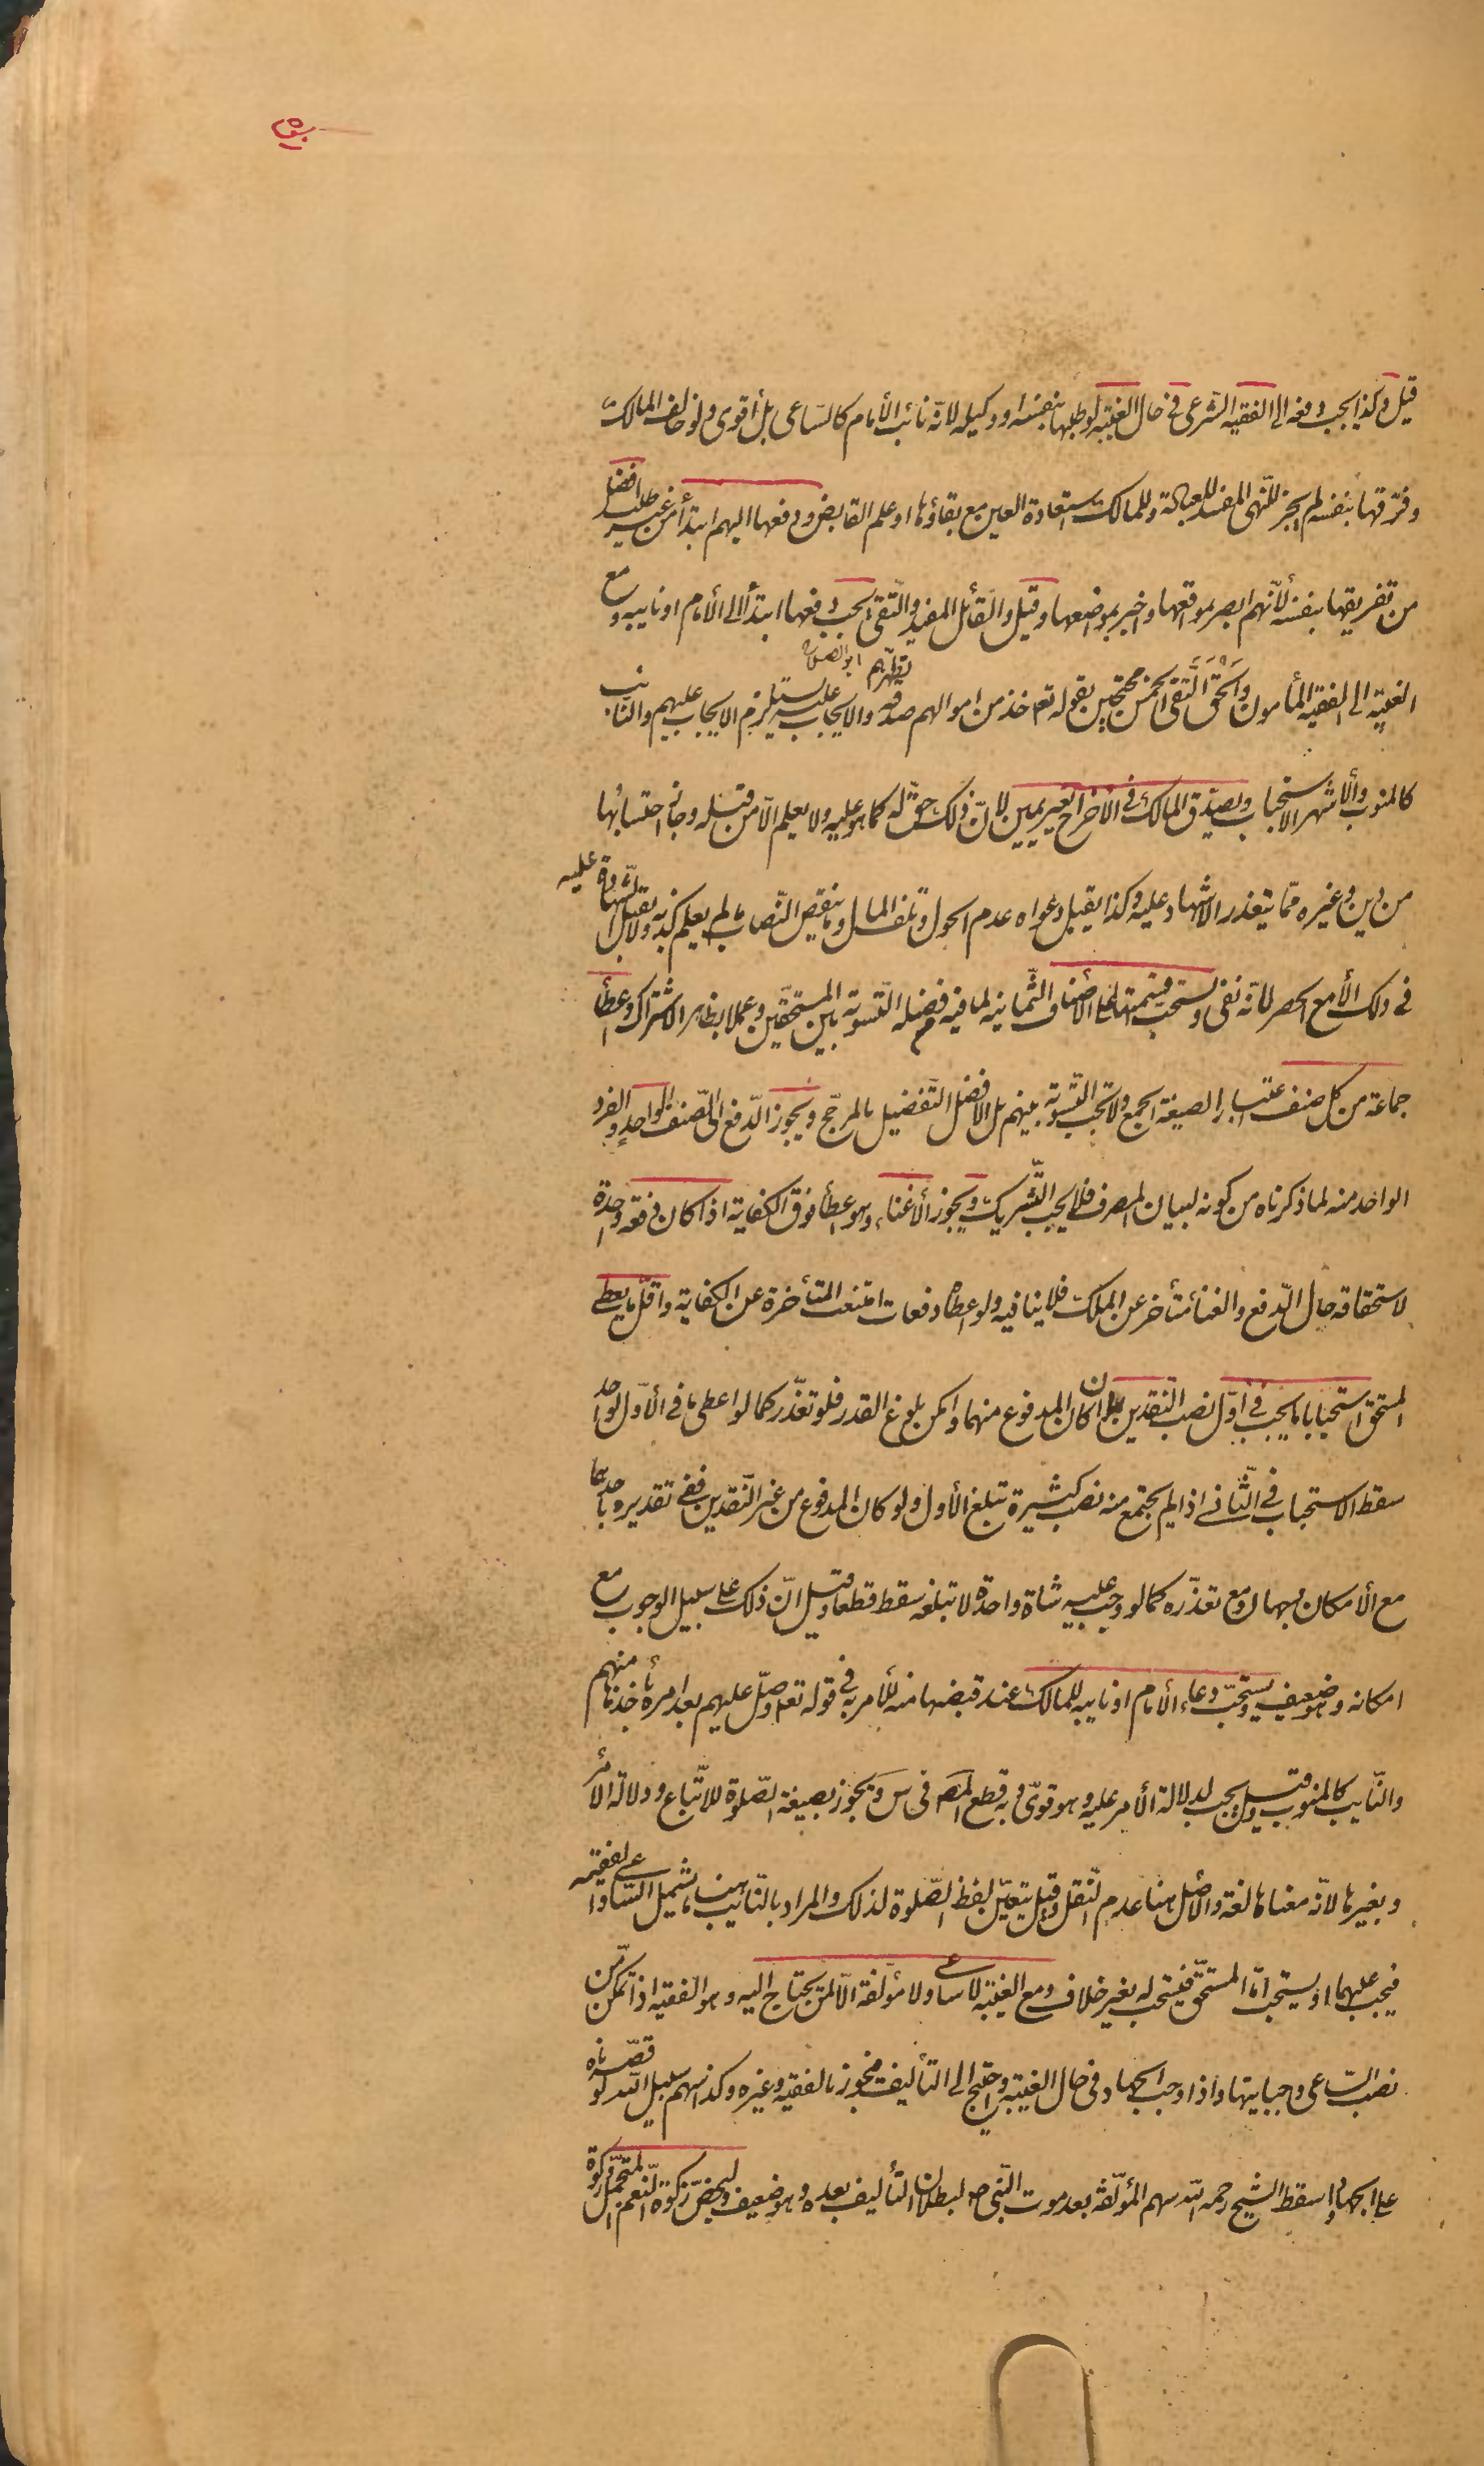 قيل وكذا يجب دفعها الى الفقيه الشرعى فى حال الغيبة لو طلبها بنفسه او وكيله لانّه نائب الأمام كالساعى بل أقوى ولو خالف المالك
وفرّقها بنفسه لم يجز للنّهى المفسد للعبادة وللمالك استعادة العين مع بقاؤها او علم القابض ودفعها اليهم ابتدأ من غير طلب افضل
من تفريقها بنفسه لأنّهم ابصر بموقعها واخبر بموضعها وقيل والقائل المفيد والتّقى يجب دفعها ابتدأ الى الأمام او نايبه ومع
ابو الصلاح
الغيبة الى الفقيه المأمون والحق التّقى الخمس محتجين بقوله تعه خذ من اموالهم صدقة تطهّرهم والايجاب عليه يستلزم الايجاب عليهم والنايب
كالمنوب والأشهر الاستحباب ويصدّق المالك فى الاخراج بغير يمين لانّ ذلك حقّ له كما هو عليه ولا يعلم الّا من قبله وجاز احتسابها
من دين وغيره ممّا يتعذر الاشهاد عليه وكذا يقبل دعواه عدم الحول وتلف المال وما ينقص النّصاب ما لم يعلم كذبه ولا تقبل الشهادة عليه
فى ذلك الّا مع الحصر لانّه نفى ويستحب قسمتها على الأصناف الثّمانية لما فيه من فضيلة التّسوية بين المستحقّين وعملا بظاهر الاشتراك واعطأ
جماعة من كل صنف اعتبارا لصيغة الجمع ولا تجب التّسوية بينهم بل الافضل التّفضيل بالمرجّح ويجوز الدّفع الى الصّنف الواحد والفرد
الواحد منه لما ذكرناه من كونه لبيان المصرف فلا يجب التّشريك ويجوز الأغناء وهو اعطأ فوق الكفاية اذا كان دفعة واحدة
لاستحقاقه حال الدّفع والغنأ متأخر عن الملك فلا ينافيه ولو اعطاه دفعات امتنعت المتأخرة عن الكفاية واقلّ ما يعطى
المستحق استحبابا ما يجب فى اوّل نصب النّقدين ان كان المدفوع منهما وامكن بلوغ القدر فلو تعذّر كما لو اعطى ما فى الأوّل لواحد
سقط الاستحباب فى الثّانى اذا لم يجتمع منه نصب كثيرة تبلغ الأول ولو كان المدفوع من غير النّقدين ففى تقديره باحدهما
مع الأمكان وجهان ومع تعذّره كما لو وجب عليه شاة واحدة لا تبلغه سقط قطعا وقيل انّ ذلك على سبيل الوجوب مع
امكانه وهو ضعيف ويستحبّ دعاء الأمام او نايبه للمالك عند قبضها منه للأمر به فى قوله تعه وصلّ عليهم بعد امره بأخذها منهم
والنّايب كالمنوب وقيل يجب لدلالة الأمر عليه وهو قوىّ وبه قطع المص فى س ويجوز بصيغة الصّلوة للاتّباع ودلالة الأمر
وبغيرها لانّه معناها لغة والأصل هنا عدم النّقل وقيل يتعيّن لفظ الصّلوة لذلك والمراد بالنّايب هنا ما يشمل السّاعى والفقيه
فيجب عليهما او يستحب امّا المستحقّ فيستحب له بغير خلاف ومع الغيبة لا ساعى ولا مؤلّفة الّا لمن يحتاج اليه وهو الفقيه اذا تمكّن من
نصب السّاعى وجبايتها واذا وجب الجهاد فى حال الغيبة واحتيج الى التأليف فيجوز بالفقيه وغيره وكذا سهم سبيل الله لو قصرناه
على الجهاد واسقط الشيخ رحمه الله سهم المؤلّفة بعد موت النّبى ص لبطلان التأليف بعده وهو ضعيف وليخصّ زكوة النّعم المتجمّل وزكوة